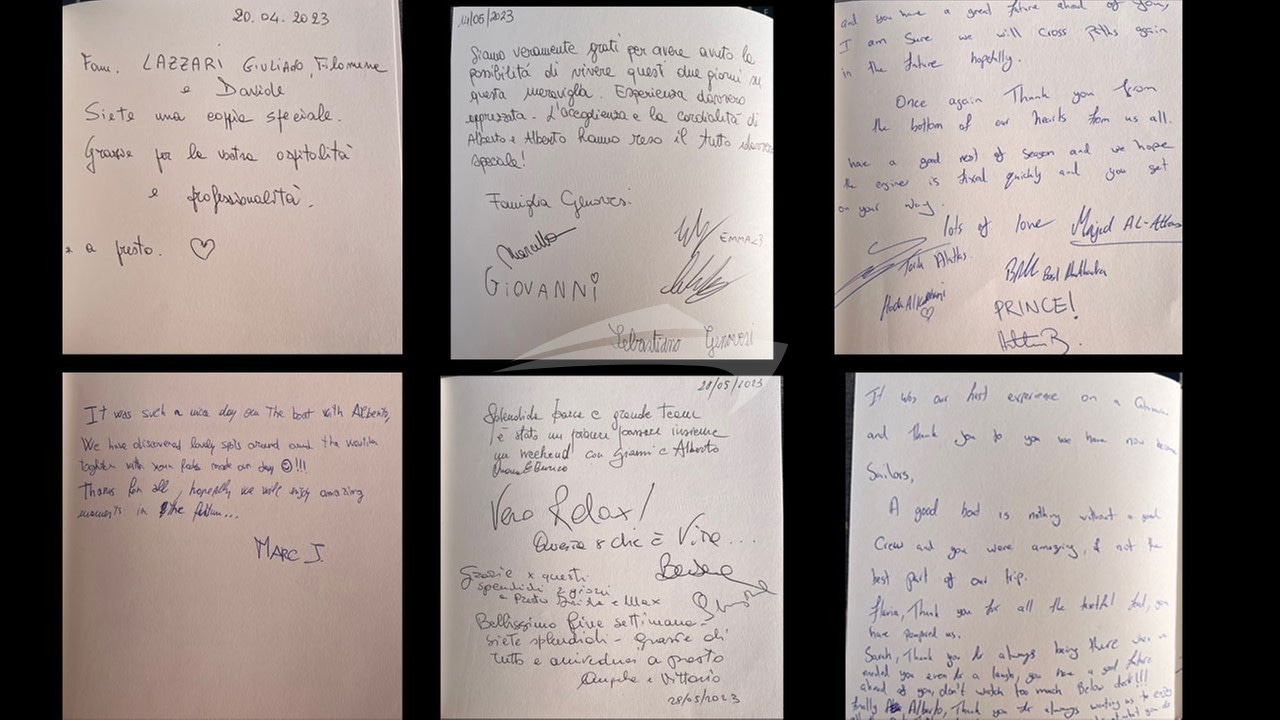 20.04.2023
Fam. LAZZARI GIULIANO, Filomena
e Davide
Siete una coppia speciale.
Grazie per la vostra ospitalità
e professionalità.
e a presto. ♡
14/05/2023
Siamo veramente grati per avere avuto la
possibilità di vivere questi due giorni su
questa meraviglia. Esperienza davvero
apprezzata. L'accoglienza e la cordialità di
Alberto e Alberto hanno reso il tutto davvero
speciale!
Famiglia Genovesi.
Marcello
EMMA <3
GIOVANNI
Sebastiano Genovesi
and you have a great future ahead of you,
I am sure we will cross paths again
in the future hopefully.
Once again Thank you from
the bottom of our hearts from us all.
have a good rest of season and we hope
the engine is fixed quickly and you get
on your way.
lots of love Majed AL-Attas
PRINCE!
It was such a nice day on the boat with Alberto,
We have discovered lovely spots around and the
together with your made our day ☺!!!
Thanks for all, hopefully we will enjoy amazing
moments in the future...
MARC J.
28/05/2023
Splendida barca e grande team
è stato un piacere passare insieme
un weekend con Gianni e Alberto
Vero Relax!
Questa sì che è Vita...
Grazie x questi
splendidi 2 giorni
a presto e Max
Bellissimo fine settimana -
siete splendidi - grazie di
tutto e arrivederci a presto
Angela e Vittorio
28/05/2023
It was our first experience on a Catamaran
and thank you to you we have now become
Sailors,
A good boat is nothing without a good
Crew and you were amazing, if not the
best part of our trip.
Flavia, Thank you for all the tasteful food, you
have pampered us.
Sarah, Thank you for always being there when we
needed you even for a laugh, you have a good future
ahead of you, don't watch too much Below deck!!!
finally Alberto, Thank you for always wanting us to enjoy